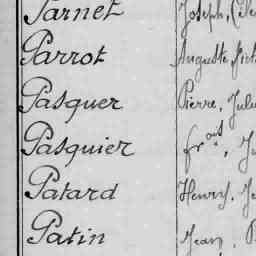 Parnet Joseph,
Parrot Auguste
Pasquer Pierre,
Pasquier frois,
Patard Henry,
Patin Jean,